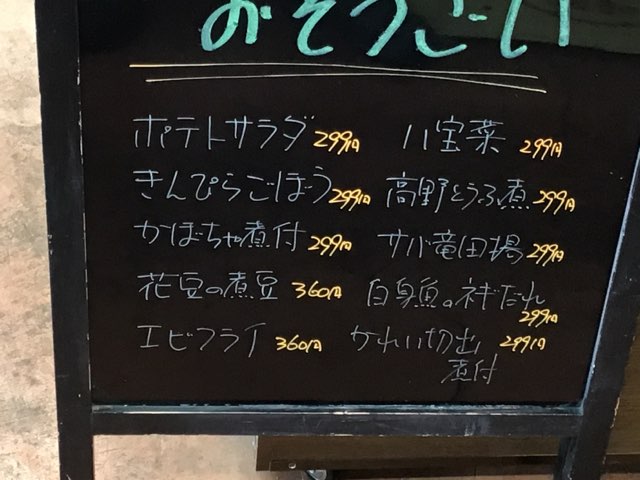 おそうざい
ポテトサラダ 299円
きんぴらごぼう 299円
かぼちゃ煮付 299円
花豆の煮豆 360円
エビフライ 360円
八宝菜 299円
高野とうふ煮 299円
サバ竜田場 299円
白身魚のネギだれ
299円
かれい切出 299円
煮付